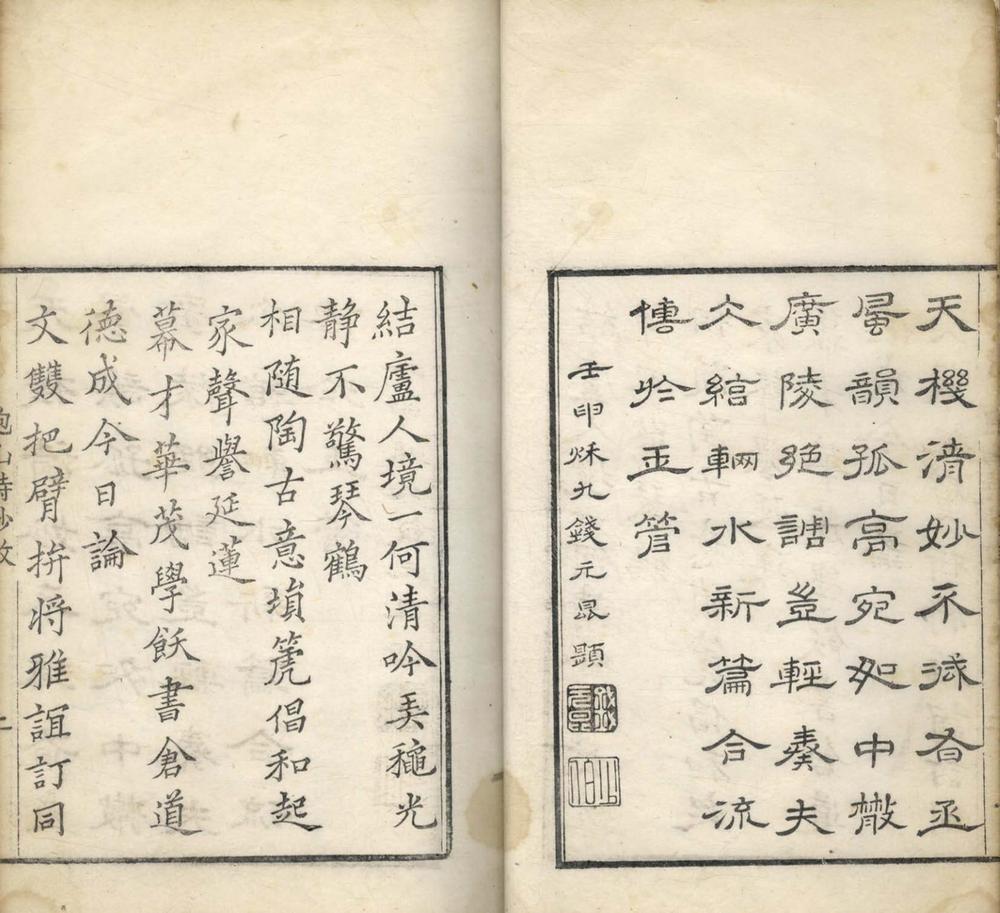 天機清妙不減右丞
風韻孤高宛如中散
廣陵絕調豈輕奏夫
仌絃輞水新篇合流
傳於玉管
壬申秋九錢元昌題
結廬人境一何清吟美穐光
静不驚琴鶴
相随陶古意塤箎倡和起
家聲譽延蓮
幕才華茂學飫書倉道
德成今日論
文雙把臂拚将雅誼訂同